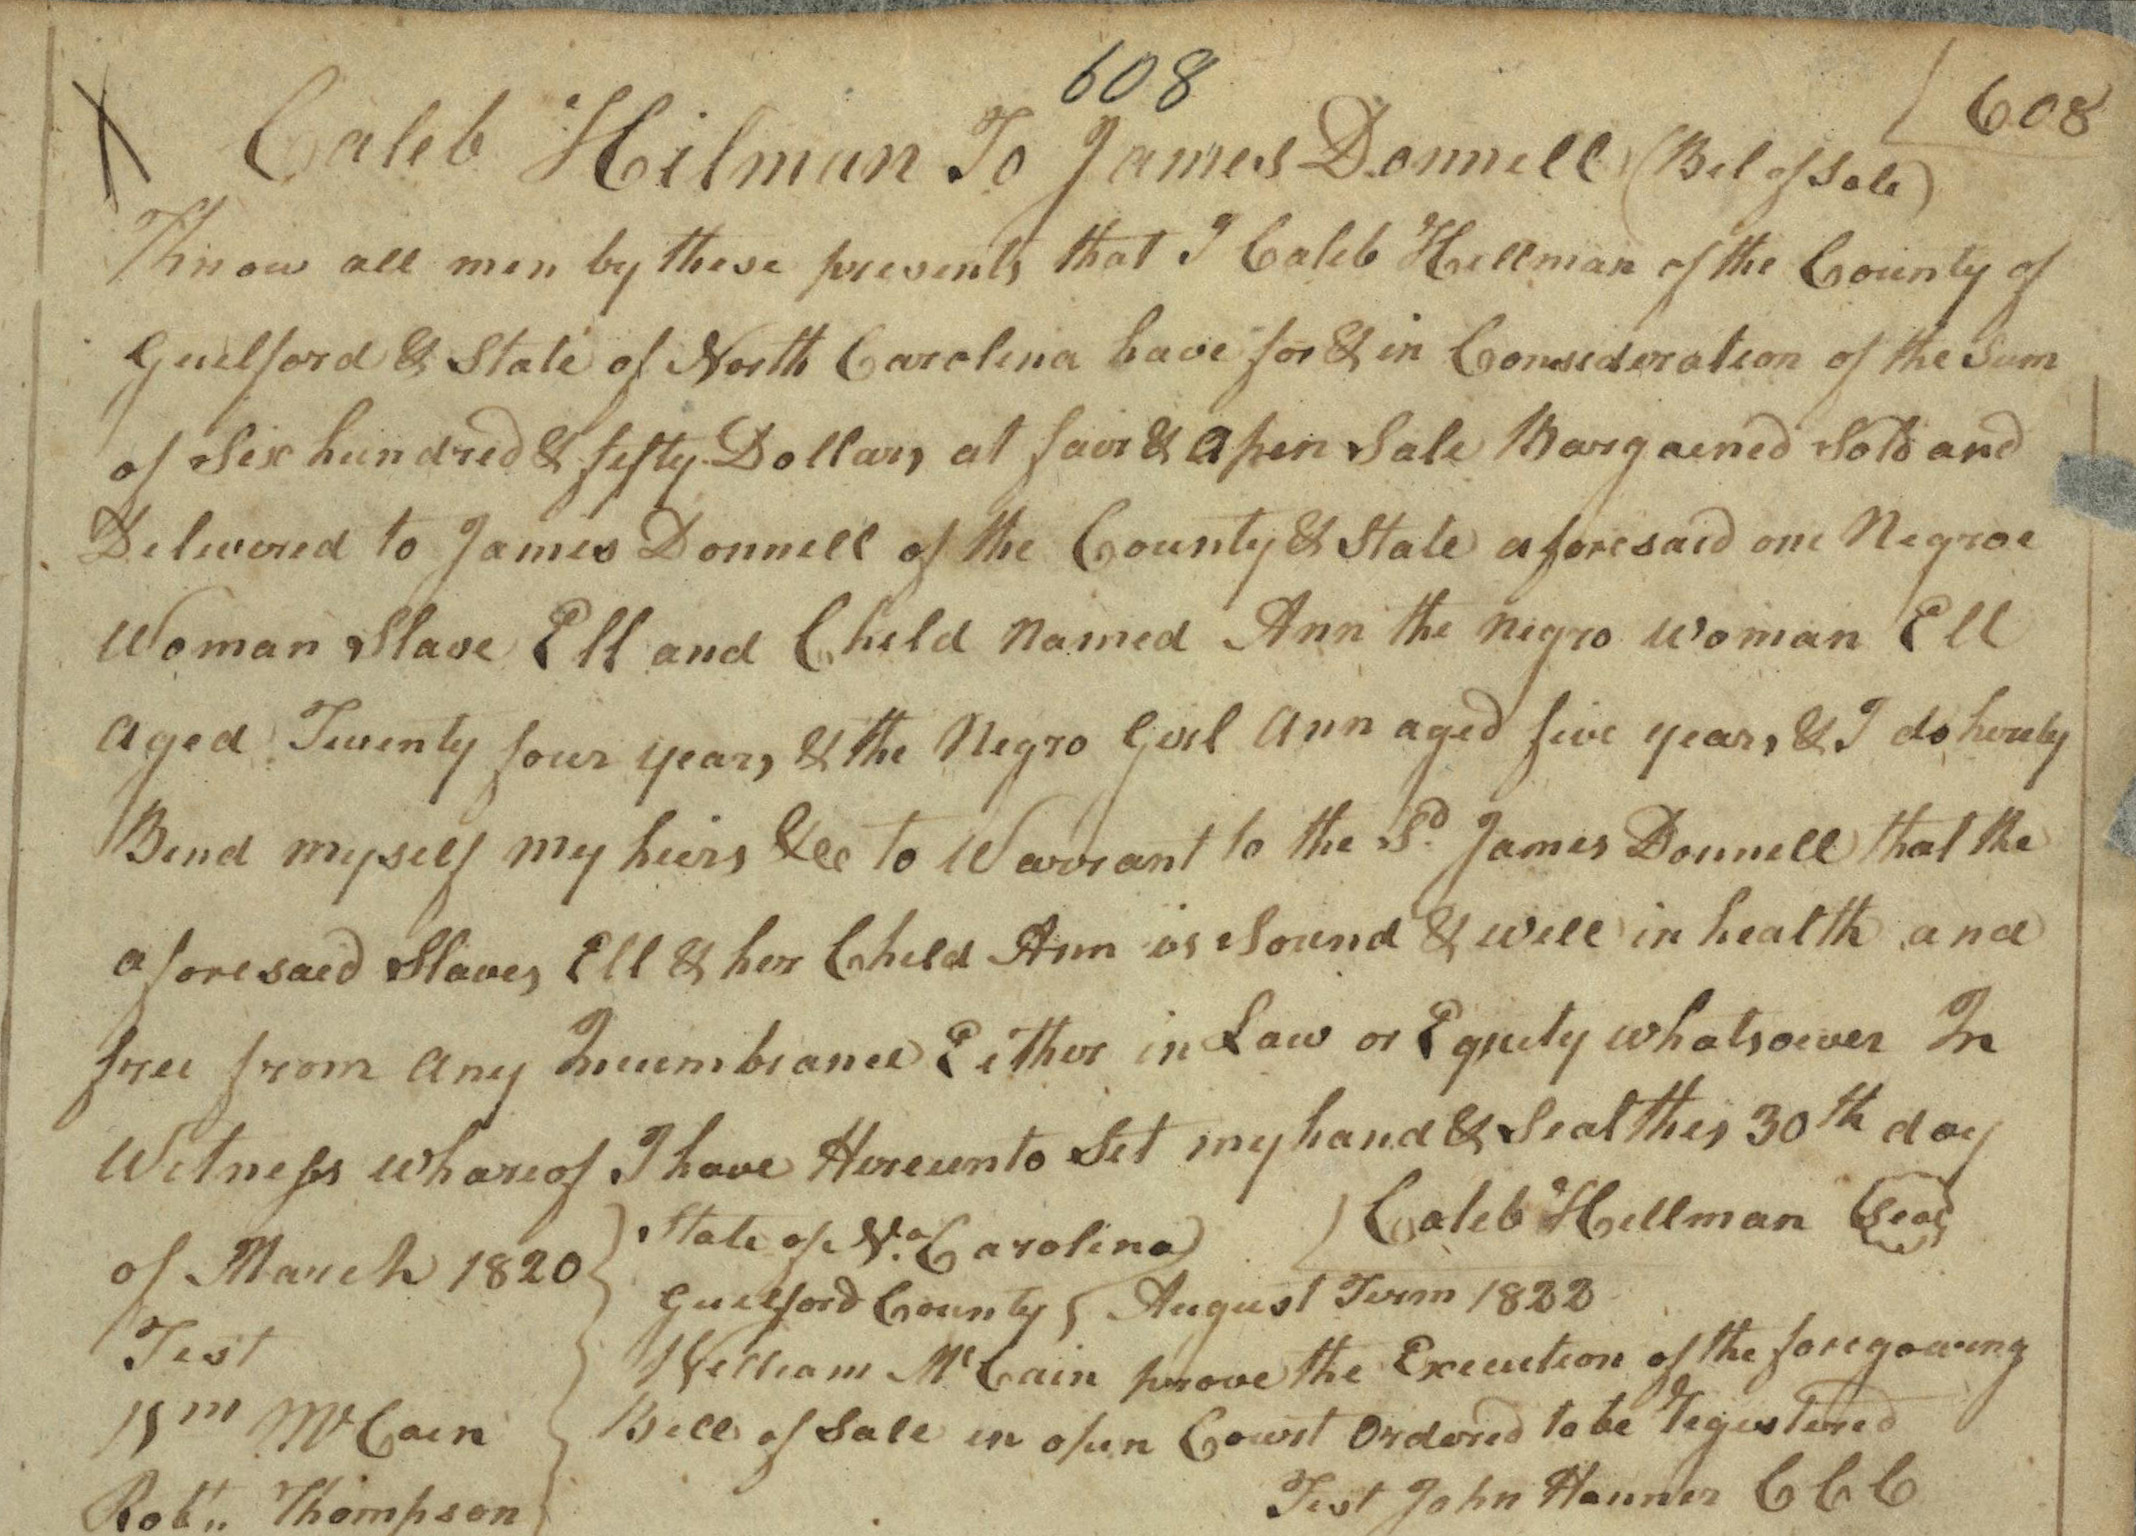 608
608
Caleb Hilman To James Donnell (Bil of Sale)
Know all men by these presents that I Caleb Hillman of the County of
Guilford & State of North Carolina have for & in Consideration of the Sum
of Six hundred & fifty Dollars at fair & Open Sale Bargained Sold and
Delivered to James Donnell of the County & State aforesaid one Negroe
Woman Slave Ell and Child Named Ann the Negro Woman Ell
Aged Twenty four years & the Negro Girl Ann aged five years & I do hereby
Bind myself my heirs &c to Warrant to the Sd. James Donnell that the
aforesaid Slaves Ell & her Child Ann is Sound & well in health and
free from Any Incumbrance Either in Law or Equity whatsoever In
Witness whareof I have Hereunto Set my hand & Seal this 30th day
of March 1820
Caleb Hillman Seal
Test
Wm McCain
Robt. Thompson
State of No. Carolina
Guilford County August Term 1822
William McCain prove the Execution of the foregowing
Bill of Sale in open Court Ordered to be Registered
Test John Hanner C C C